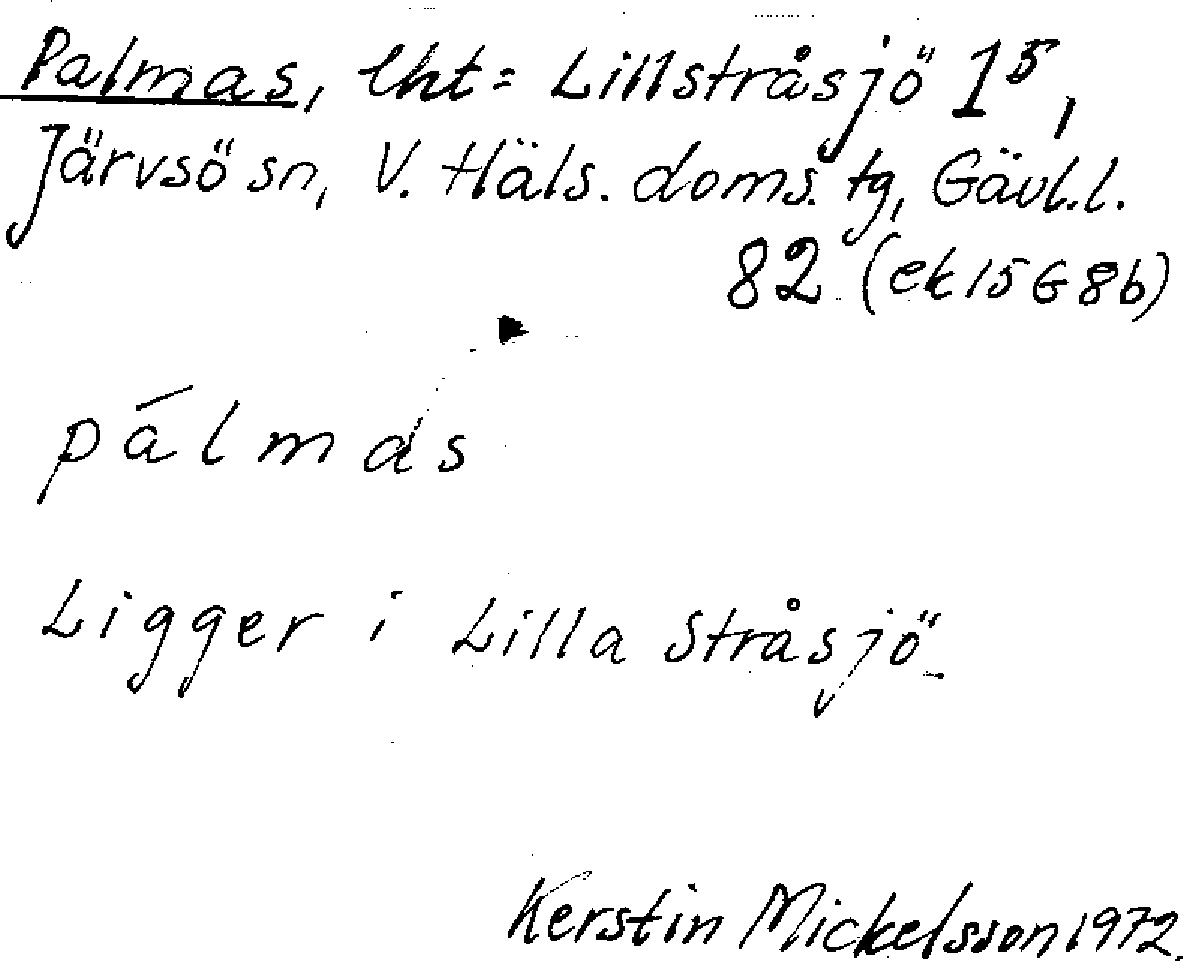 Palmas, lht = Lillstråsjö 1⁵,
Järvsö sn, V. Häls. doms. tg, Gävl.l.
82 (ek 15 G 8b)
pálmas
Ligger i Lilla Stråsjö.
Kerstin Mickelsson 1972.